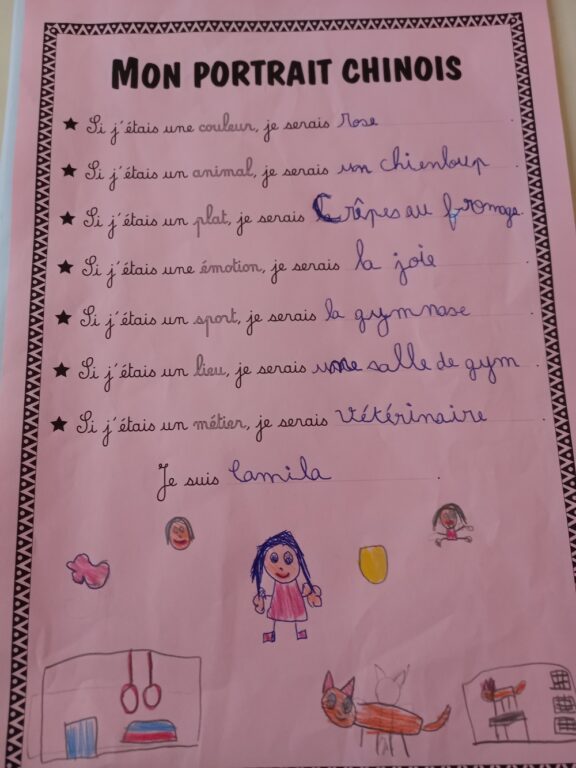 MON PORTRAIT CHINOIS
★ Si j'étais une couleur, je serais rose.
★ Si j'étais un animal, je serais un chienloup.
★ Si j'étais un plat, je serais Crêpes au fromage.
★ Si j'étais une émotion, je serais la joie.
★ Si j'étais un sport, je serais la gymnase.
★ Si j'étais un lieu, je serais une salle de gym.
★ Si j'étais un métier, je serais vétérinaire.
Je suis Camila.